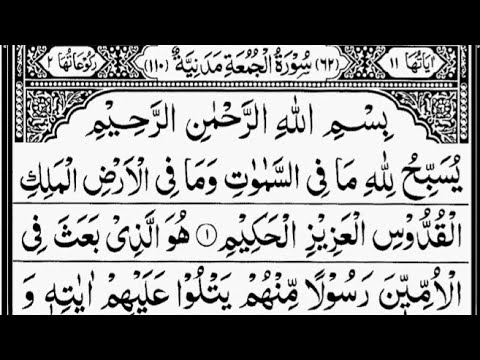 اٰيَاتُهَا ١١ (٦٢) سُوْرَةُ الْجُمُعَةِ مَدَنِيَّةٌ (١١٠) رُكُوْعَاتُهَا ٢
بِسْمِ اللّٰهِ الرَّحْمٰنِ الرَّحِيْمِ
يُسَبِّحُ لِلّٰهِ مَا فِى السَّمٰوٰتِ وَمَا فِى الْاَرْضِ الْمَلِكِ
الْقُدُّوْسِ الْعَزِيْزِ الْحَكِيْمِ ۝١ هُوَ الَّذِىْ بَعَثَ فِى
الْاُمِّيّٖنَ رَسُوْلًا مِّنْهُمْ يَتْلُوْا عَلَيْهِمْ اٰيٰتِهٖ وَ